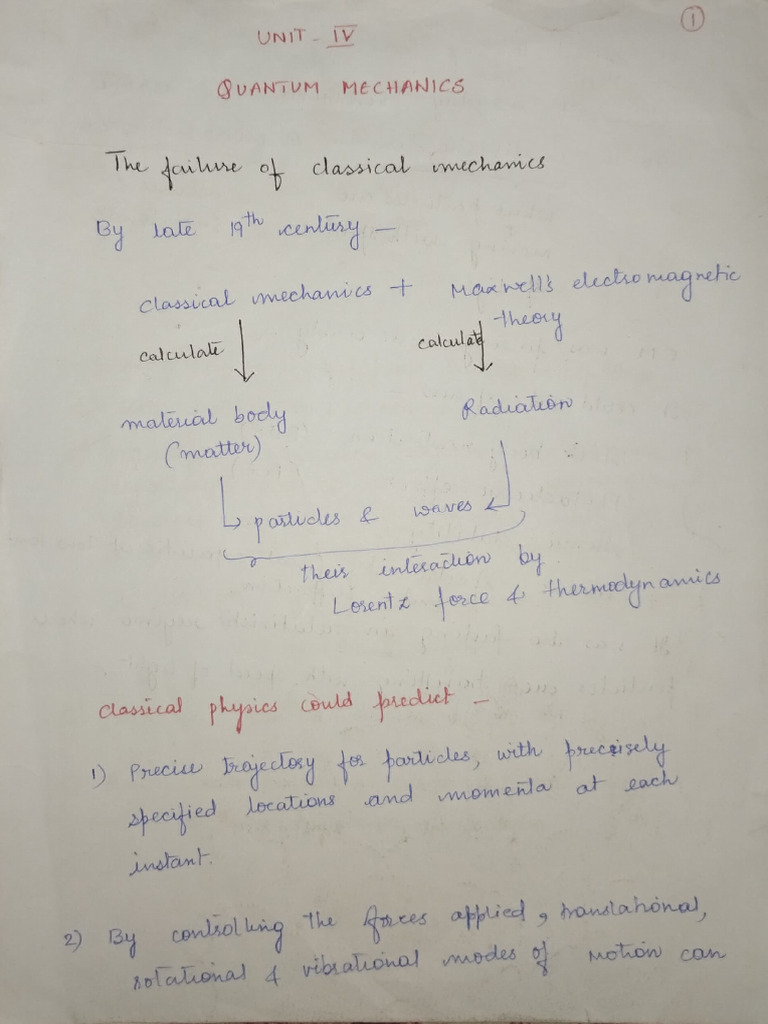 ①
UNIT - IV
QUANTUM MECHANICS
The failure of classical mechanics
By late 19th century –
classical mechanics + Maxwell's electromagnetic
theory
calculate calculate
material body Radiation
(matter)
particles & waves
their interaction by
Lorentz force & thermodynamics
classical physics could predict –
1) Precise trajectory for particles, with precisely
specified locations and momenta at each
instant.
2) By controlling the forces applied, translational,
rotational & vibrational modes of motion can